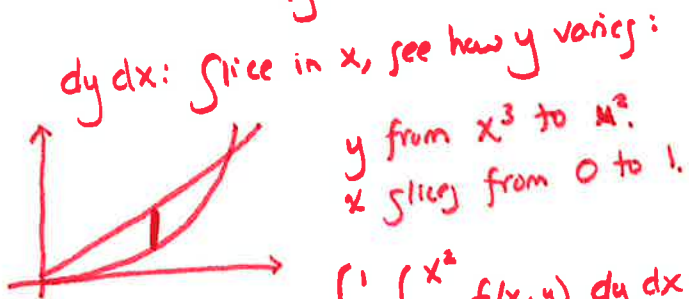 dy dx: slice in x, see how y varies:
y from x³ to x².
x slices from 0 to 1.
∫¹ ∫ˣ² f(x,y) dy dx